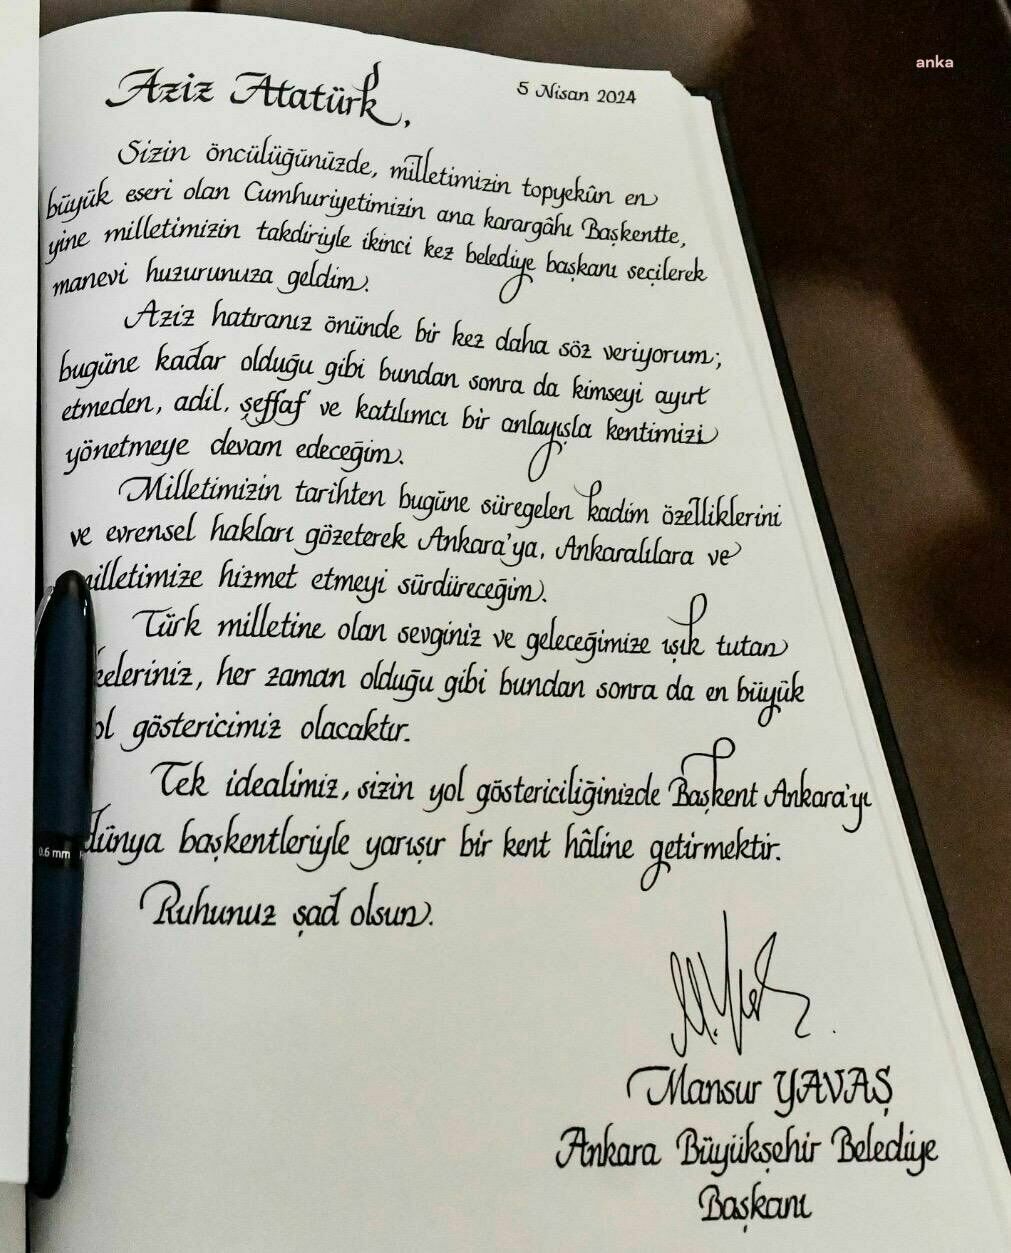 anka
5 Nisan 2024
Aziz Atatürk,
Sizin öncülüğünüzde, milletimizin topyekûn en
büyük eseri olan Cumhuriyetimizin ana karargâhı Başkentte,
yine milletimizin takdiriyle ikinci kez belediye başkanı seçilerek
manevi huzurunuza geldim.
Aziz hatıranız önünde bir kez daha söz veriyorum;
bugüne kadar olduğu gibi bundan sonra da kimseyi ayırt
etmeden, adil, şeffaf ve katılımcı bir anlayışla kentimizi
yönetmeye devam edeceğim.
Milletimizin tarihten bugüne süregelen kadim özelliklerini
ve evrensel hakları gözeterek Ankara'ya, Ankaralılara ve
milletimize hizmet etmeyi sürdüreceğim.
Türk milletine olan sevginiz ve geleceğimize ışık tutan
keleriniz, her zaman olduğu gibi bundan sonra da en büyük
ol göstericimiz olacaktır.
Tek idealimiz, sizin yol göstericiliğinizde Başkent Ankara'yı
dünya başkentleriyle yarışır bir kent hâline getirmektir.
Ruhunuz şad olsun.
Mansur YAVAŞ
Ankara Büyükşehir Belediye
Başkanı
0.6 mm